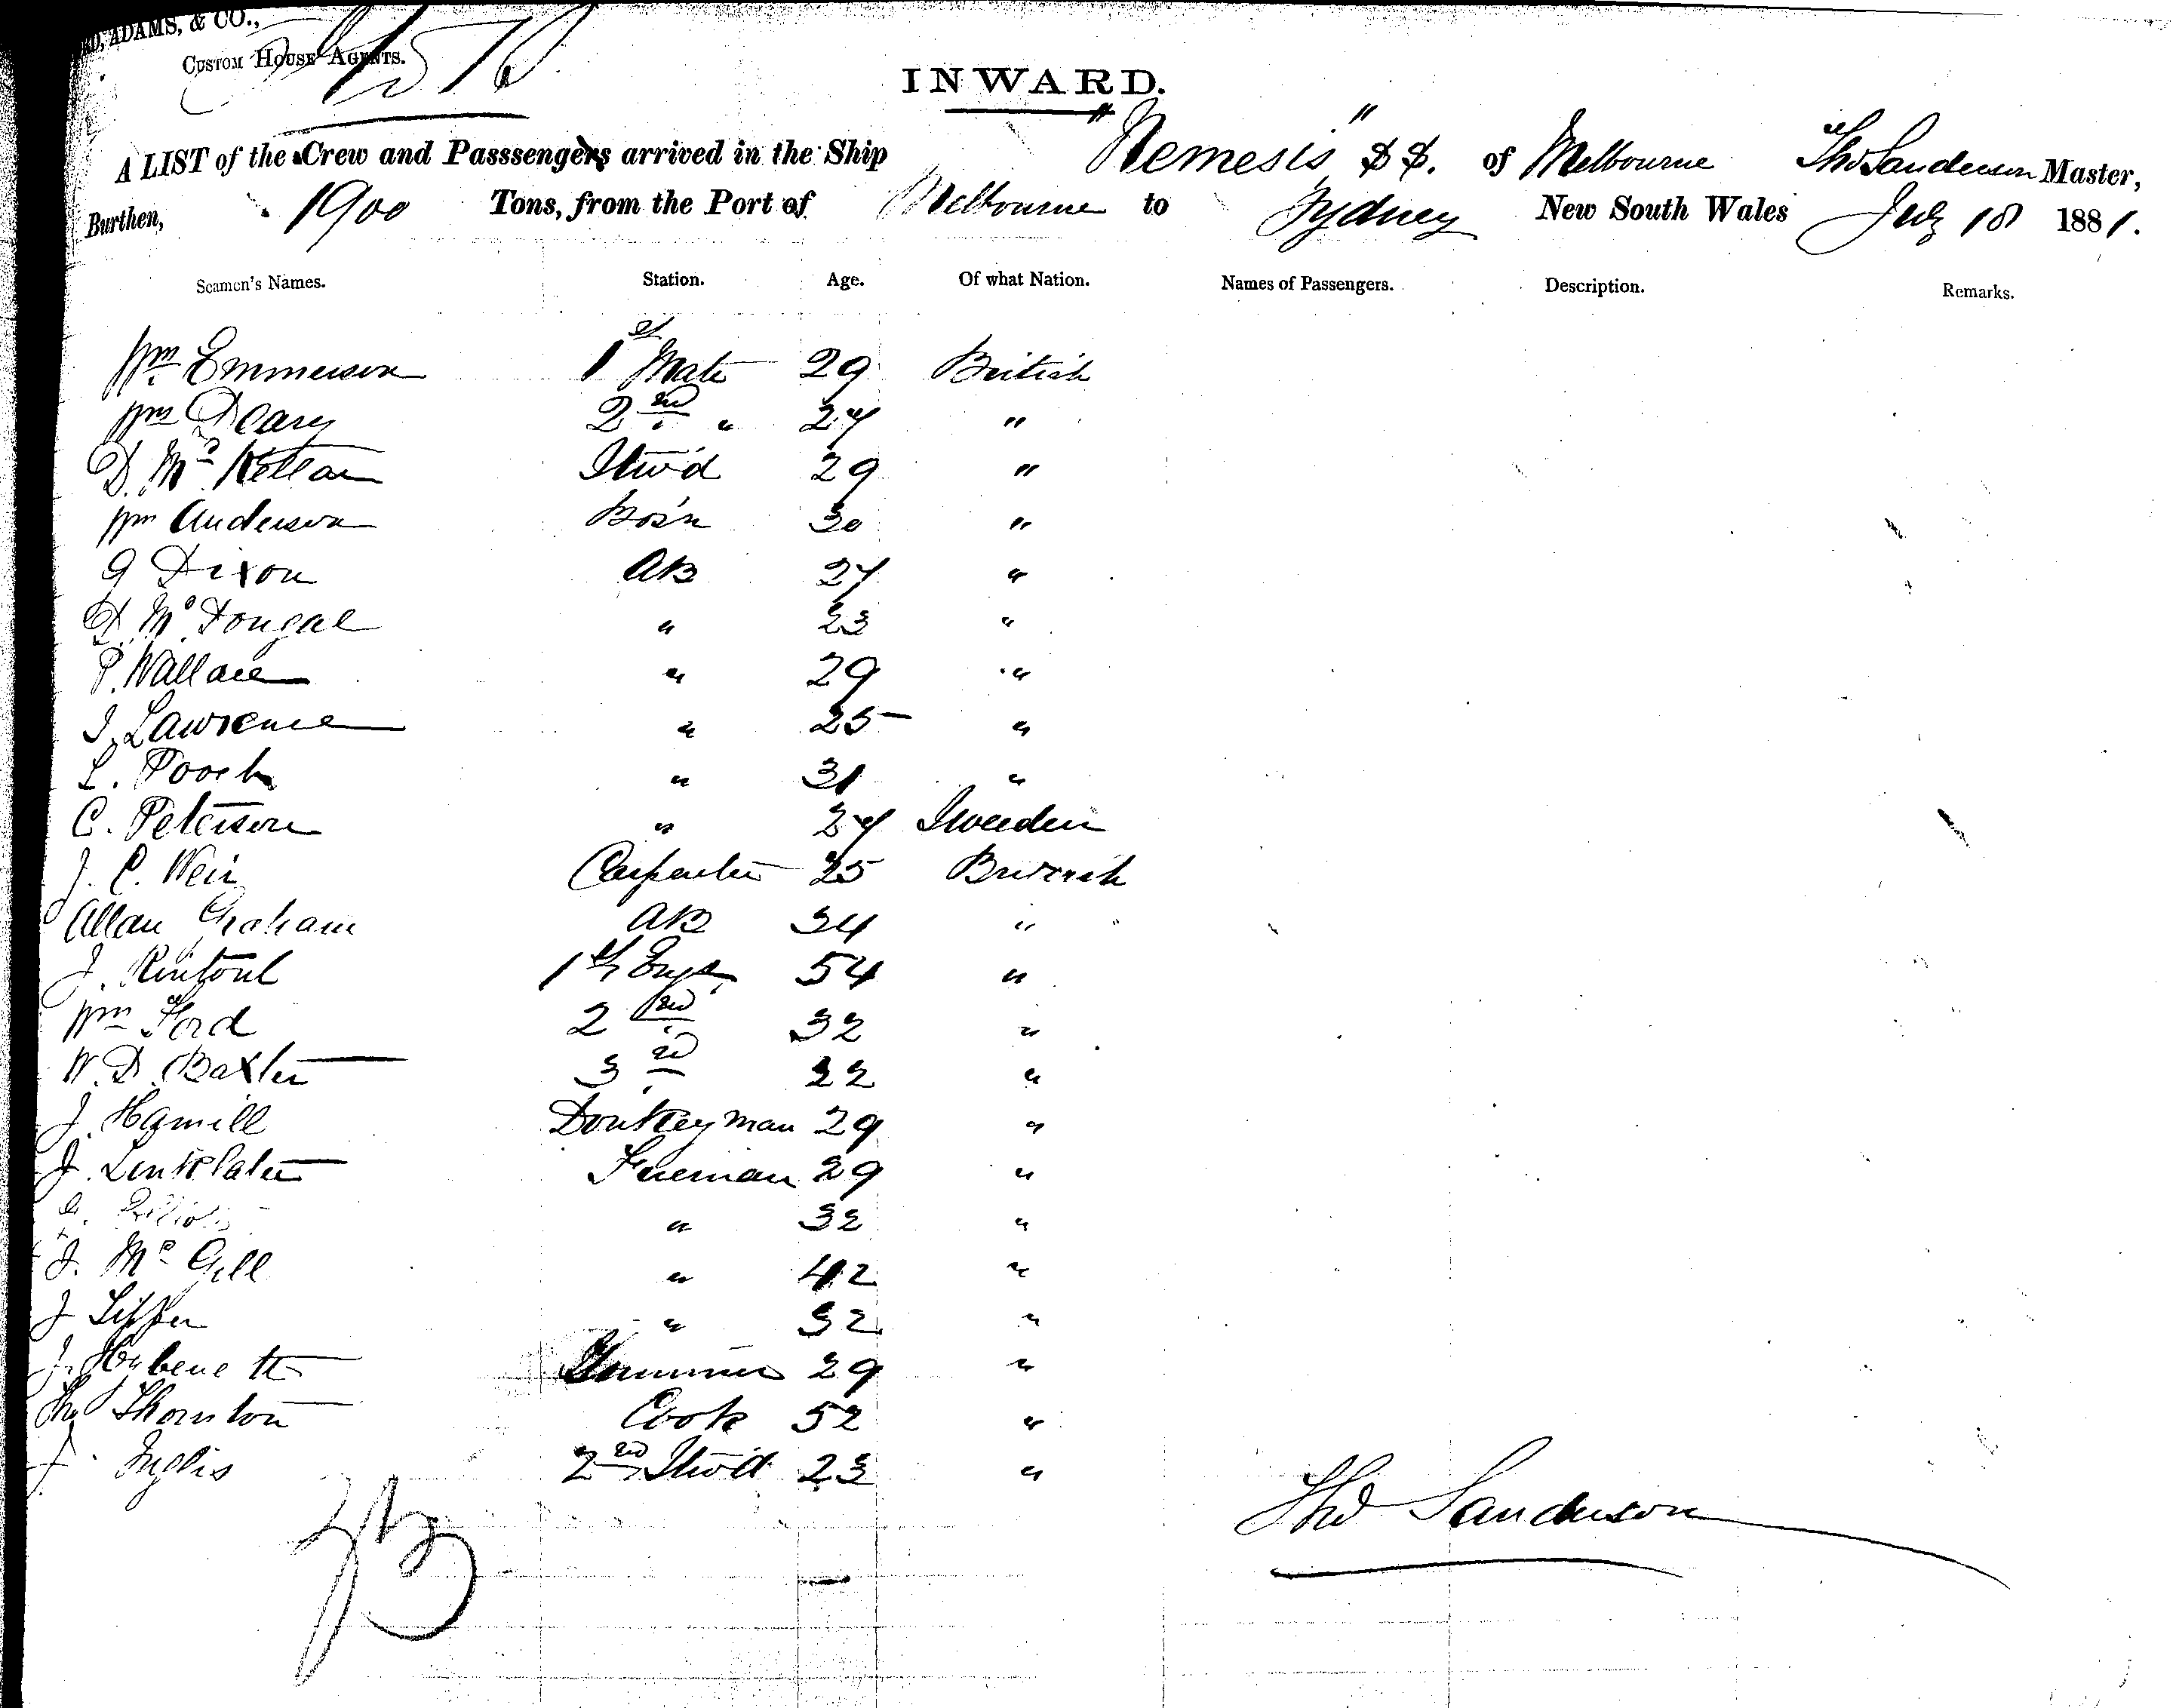 D, ADAMS, & CO.,
CUSTOM HOUSE AGENTS.
INWARD.
A LIST of the Crew and Passsengers arrived in the Ship "Nemesis" SS. of Melbourne Thos Sanderson Master,
Burthen, 1900 Tons, from the Port of Melbourne to Sydney New South Wales July 18 1881.
Seamen's Names. Station. Age. Of what Nation. Names of Passengers. Description. Remarks.
Wm Emmerson 1st Mate 29 British
Wm Deary 2nd " 27 "
D. Mc Kellar Stw'd 29 "
Wm Anderson Bos'n 30 "
G Dixon AB 27 "
D. Mc Dougal " 23 "
P. Wallace " 29 "
J. Lawrence " 25 "
L. " 31 "
C. Peterson " 27 Sweeden
J. C. Weir Carpenter 25 British
Allan Graham AB 34 "
J. Rintoul 1st Engr 54 "
Wm Ford 2nd 32 "
W. D. Baxter 3rd 22 "
J. Hamill Donkeyman 29 "
J. Linklater Fireman 29 "
" 32 "
J. Mc Gill " 42 "
J " 32 "
J. Trimmer 29 "
Thos Thornton Cook 52 "
J. Inglis 2nd Stw'd 23 "
Thos Sanderson